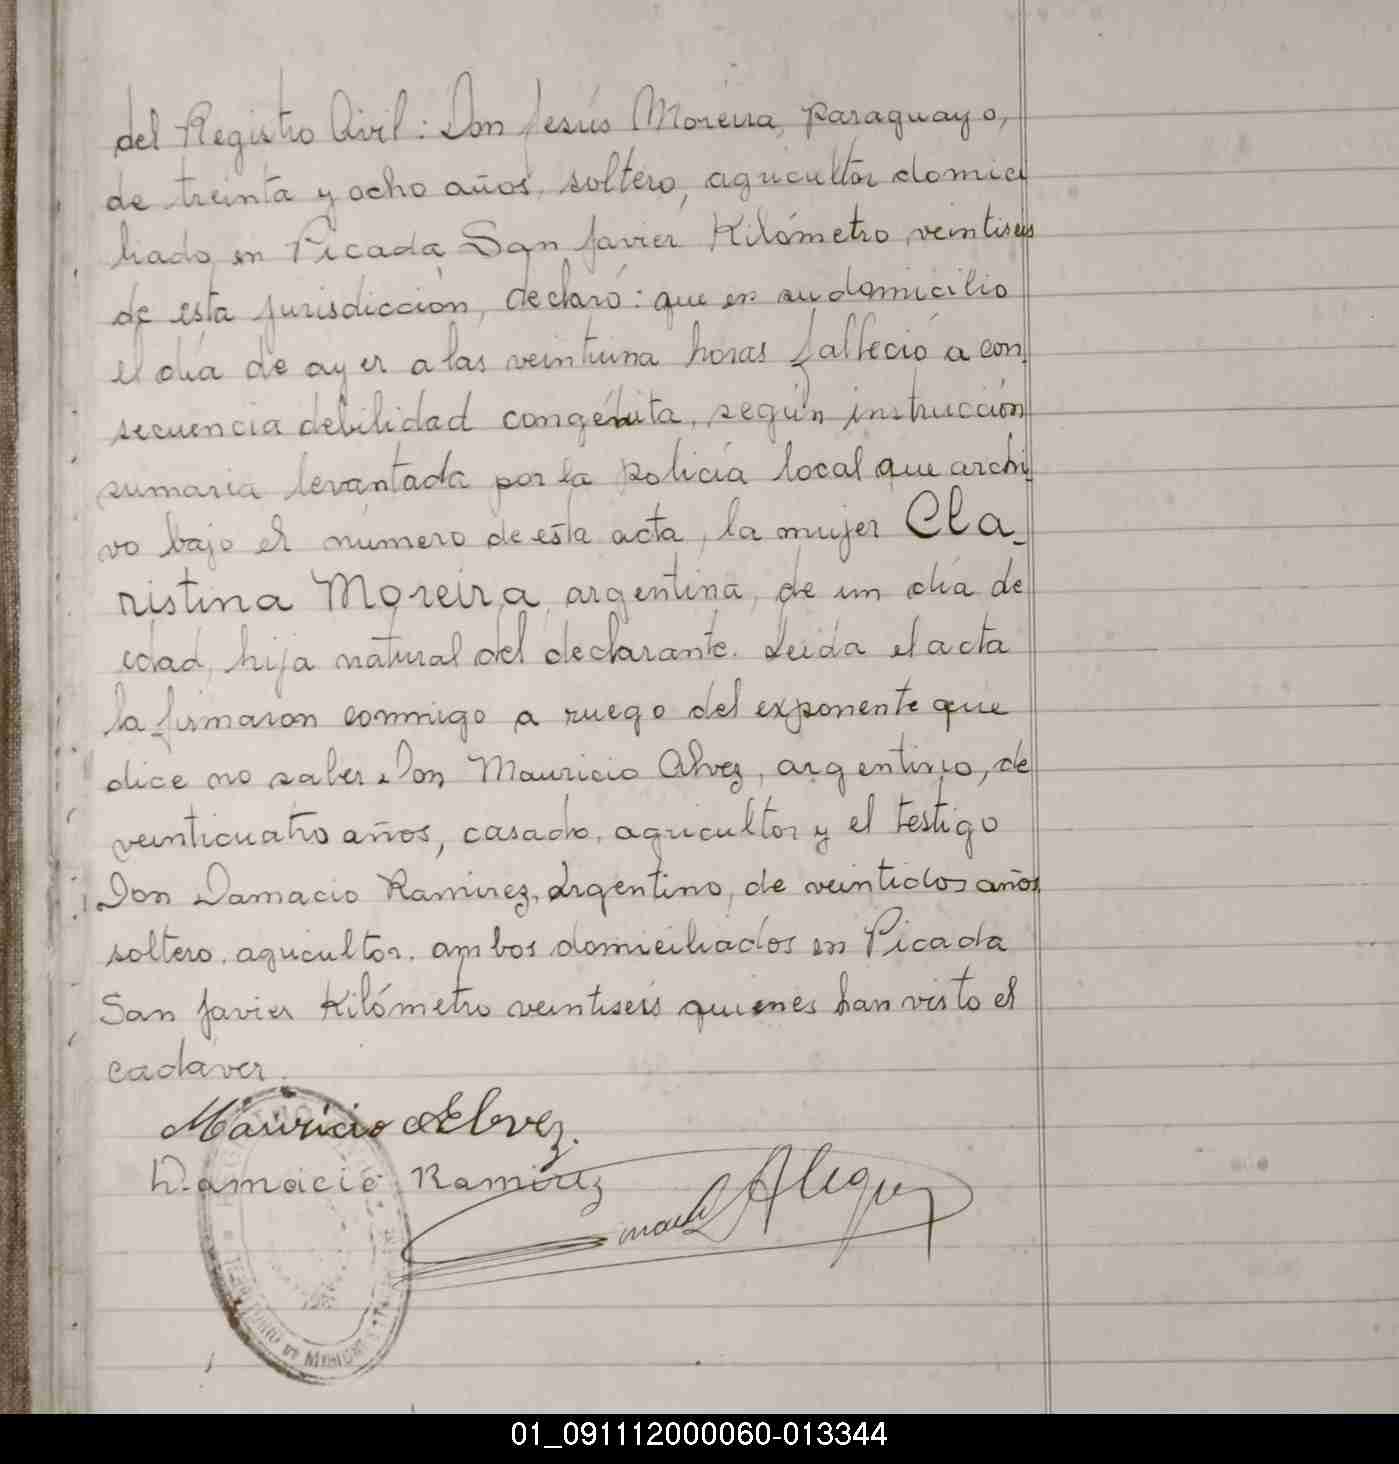 del Registro Civil: Don Jesús Moreira, paraguayo,
de treinta y ocho años, soltero, agricultor domici
liado en Picada San Javier Kilómetro veintiseis
de esta jurisdicción, declaró: que en su domicilio
el día de ayer a las veintiuna horas falleció a con
secuencia debilidad congénita, según instrucción
sumaria levantada por la policía local que archi
vo bajo el número de esta acta, la mujer Cla-
ristina Moreira, argentina, de un día de
edad, hija natural del declarante. Leida el acta
la firmaron conmigo a ruego del exponente que
dice no saber Don Mauricio Alvez, argentino, de
veinticuatro años, casado, agricultor y el testigo
Don Damacio Ramirez, Argentino, de veintidos años
soltero, agricultor, ambos domiciliados en Picada
San Javier Kilómetro veintiseis quienes han visto el
cadaver.
Mauricio Alvez.
Damacio Ramirez
TERRITORIO DE MISIONES
01_091112000060-013344